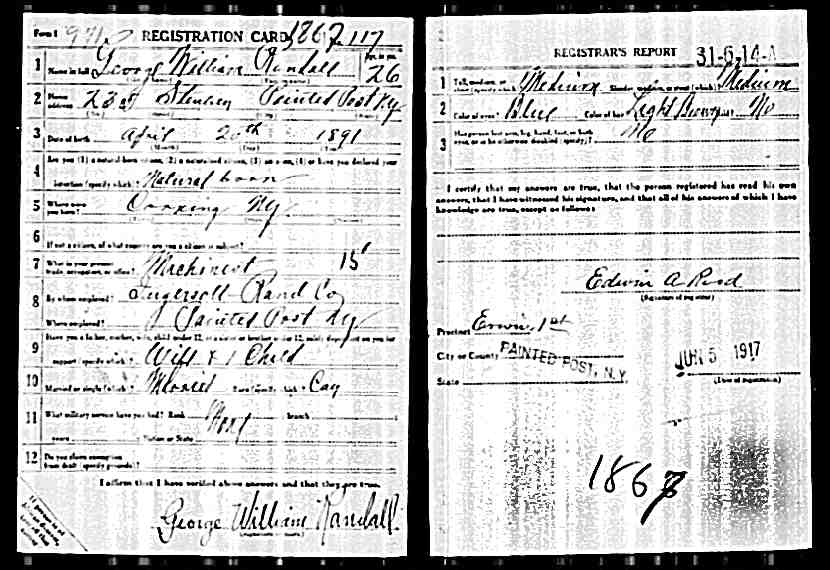 Form 1 REGISTRATION CARD 1867 117
1 Name in full George William Randall Age in yrs. 26
2 Home address Steuben Painted Post NY
3 Date of birth April 20th 1891
4 Are you (1) a natural-born citizen, (2) a naturalized citizen, (3) an alien, (4) or have you declared your
intention (specify which)? Natural born
5 Where were you born? Corning NY
6 If not a citizen, of what country are you a citizen or subject?
7 What is your present trade, occupation, or office? Machinist 15
8 By whom employed? Ingersoll-Rand Co
Where employed? Painted Post NY
9 Have you a father, mother, wife, child under 12, or a sister or brother under 12, solely dependent on you for
support (specify which)? Wife & 1 Child
10 Married or single (which)? Married Race (specify which)? Cau
11 What military service have you had? Rank None branch
years Nation or State
12 Do you claim exemption
from draft (specify grounds)?
I affirm that I have verified above answers and that they are true.
George William Randall
REGISTRAR'S REPORT 31-6-14-A
1 Tall, medium, or short (specify which)? Medium Slender, medium, or stout (which)? Medium
2 Color of eyes? Blue Color of hair? Light Brown Bald? No
3 Has person lost arm, leg, hand, foot, or both
eyes, or is he otherwise disabled (specify)? No
I certify that my answers are true, that the person registered has read his own
answers, that I have witnessed his signature, and that all of his answers of which I have
knowledge are true, except as follows:
Edwin A
(Signature of registrar)
Precinct Erwin, 1st
City or County PAINTED POST, N.Y.
State
JUN 5 1917
(Date of registration)
1867